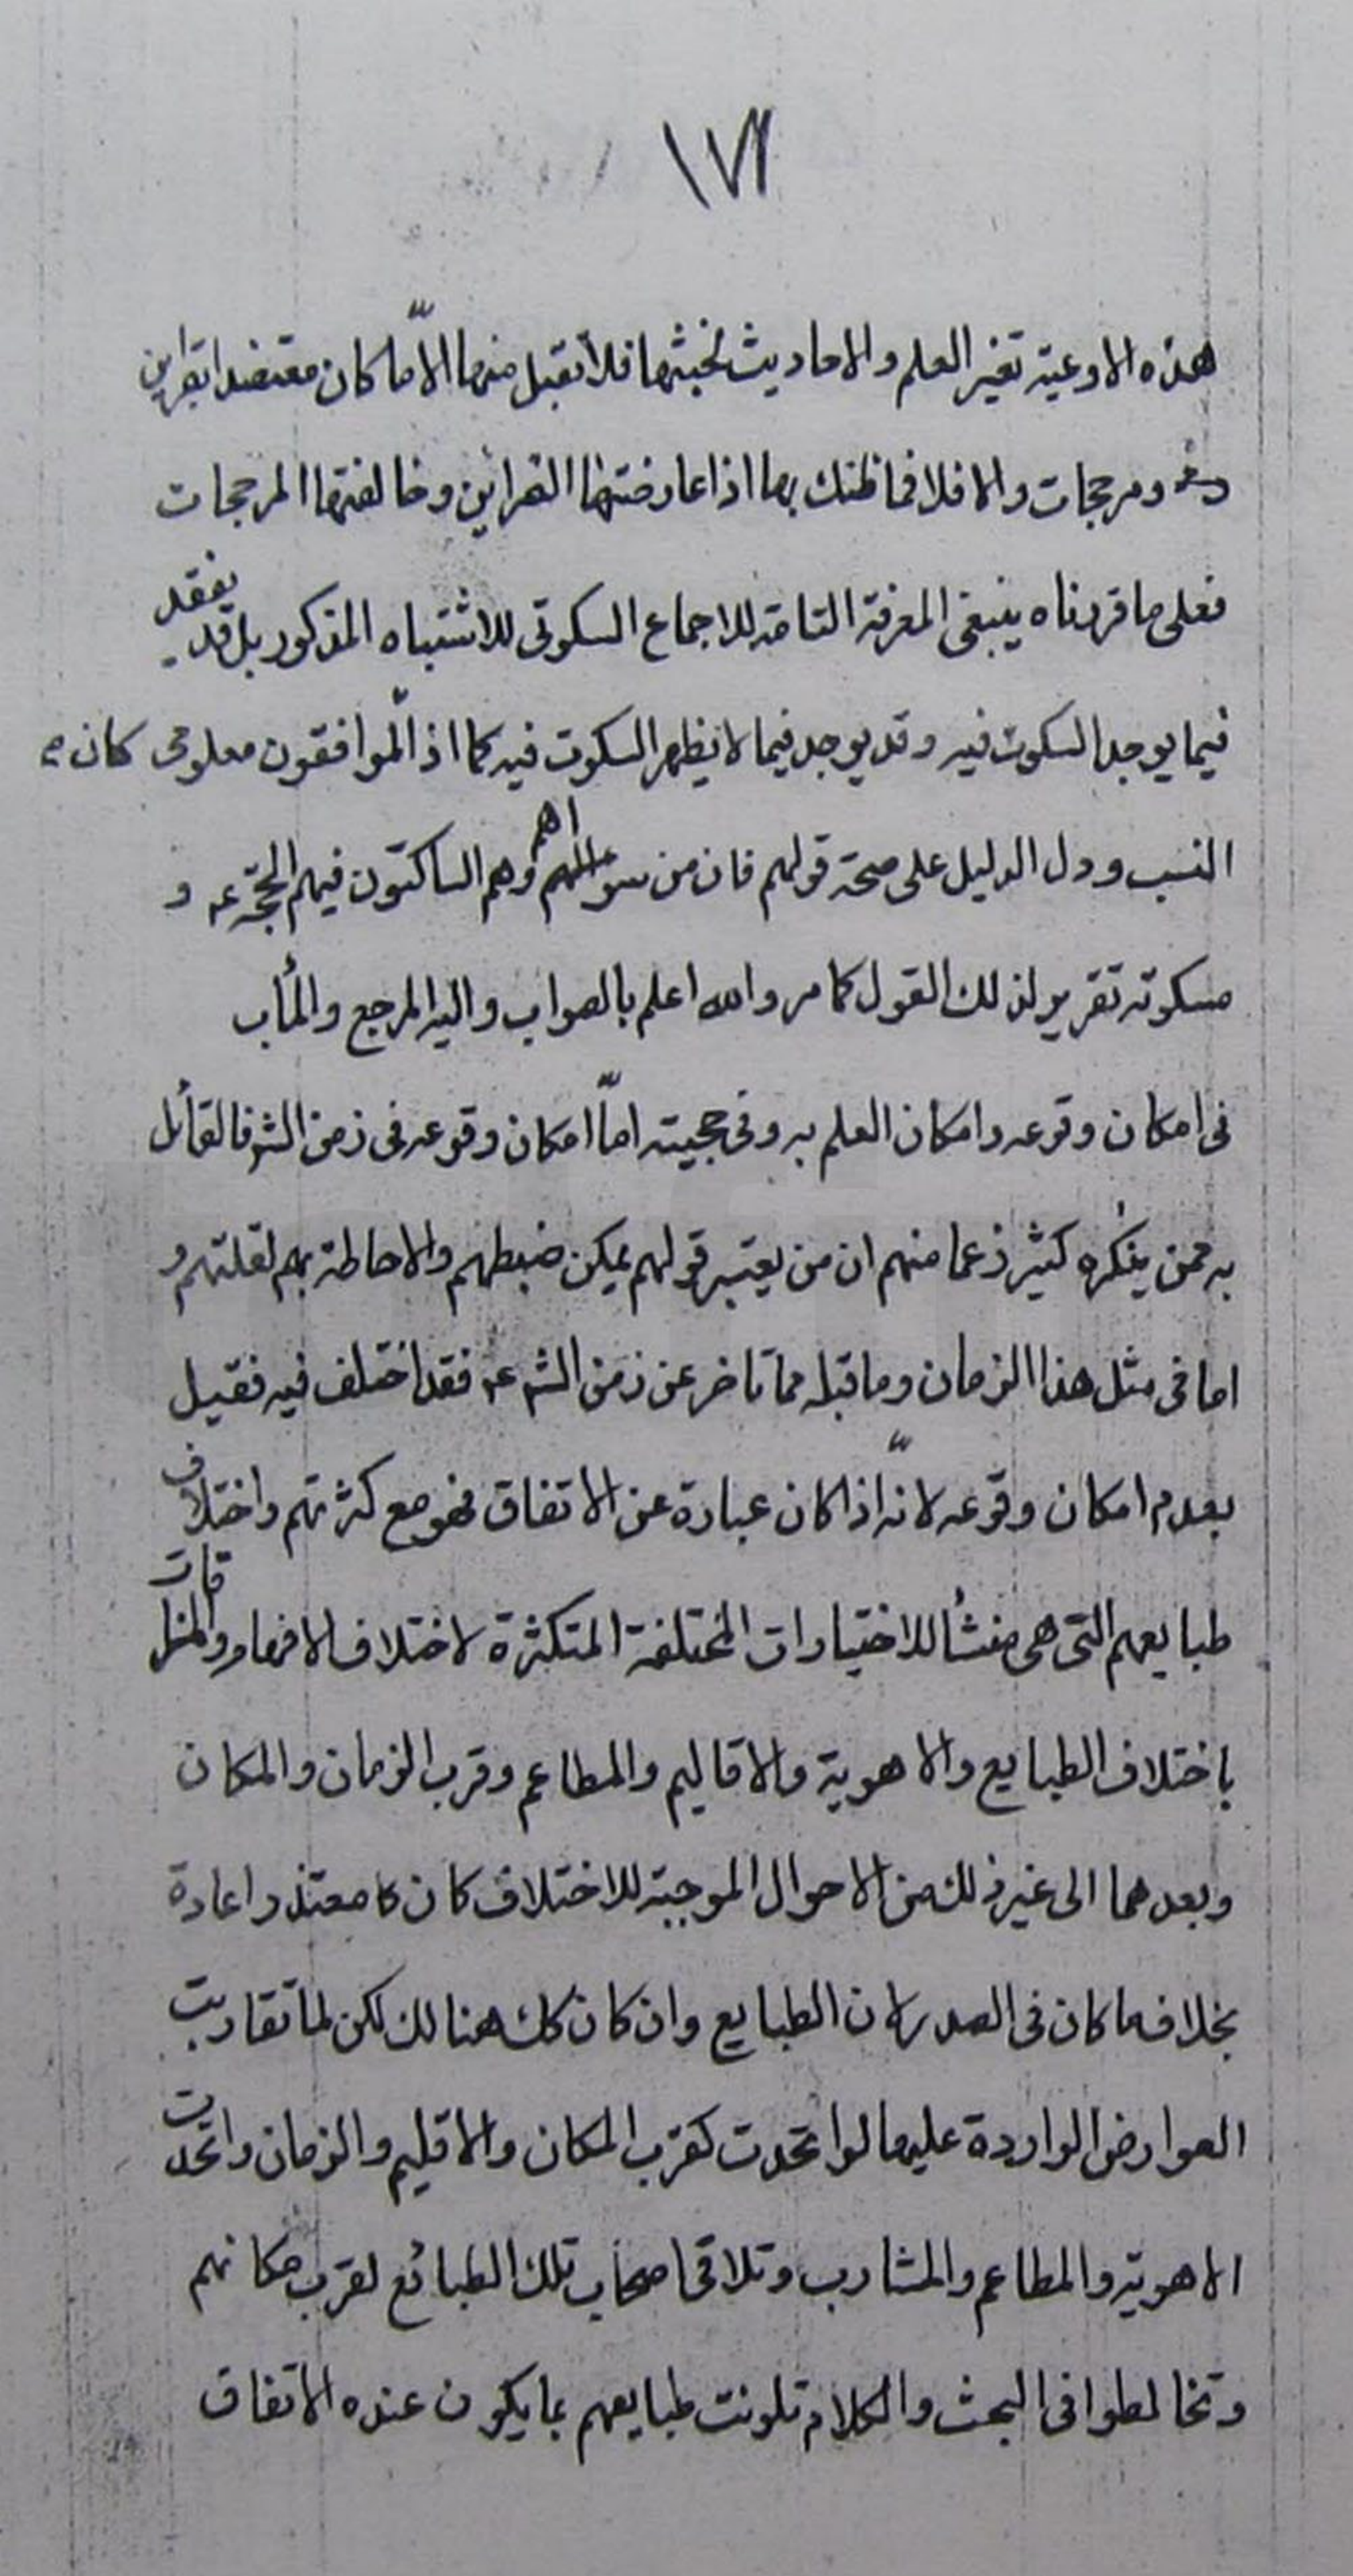 ١٧١
هذه الاوعية تغير العلم والاحاديث لخبثها فلا تقبل منها الّا ما كان معتضدا بقراين
ومرجحات والا فلا فما ظنك بها اذا عارضتها القراين وخالفتها المرجحات
فعلى ما قررناه ينبغى المعرفة التامة للاجماع السكوتى للاشتباه المذكور بل قد يفقد
فيما يوجد السكوت فيه وقد يوجد فيما لا يظهر السكوت فيه كما اذ الموافقون معلومى كان
النسب ودل الدليل على صحة قولهم فان من سواهم وهم الساكتون فيهم الحجة عه و
سكوته تقرير لذلك القول كما مر والله اعلم بالصواب واليه المرجع والمأب
فى امكان وقوعه وامكان العلم به وفى حجيته امّا امكان وقوعه فى زمن الشر فالقائل
به ممن ينكره كثير زعما منهم ان من يعتبر قولهم يمكن ضبطهم والاحاطة بهم لقلتهم و
اما فى مثل هذا الزمان وما قبله مما تاخر عن زمن الشر عه فقد اختلف فيه فقيل
بعدم امكان وقوعه لانّه اذا كان عبارة عن الاتفاق فهو مع كثرتهم واختلاف
طبايعهم التى هى منشأ للاختيارات المختلفة المتكثرة لاختلاف الافهام والمذاقات
باختلاف الطبايع والاهوية والاقاليم والمطاعم وقرب الزمان والمكان
وبعدهما الى غير ذلك من الاحوال الموجبة للاختلاف كان كا معتذر اعادة
بخلاف ما كان فى الصدر لان الطبايع وان كان كك هنالك لكن لما تقاربت
العوارض الواردة عليها لو اتحدت كقرب المكان والاقليم والزمان واتحدت
الاهوية والمطاعم والمشارب وتلاقى اصحاب تلك الطبائع لقرب مكانهم
وتخالطوا فى البحث والكلام تلونت طبايعهم بما يكون عنده الاتفاق